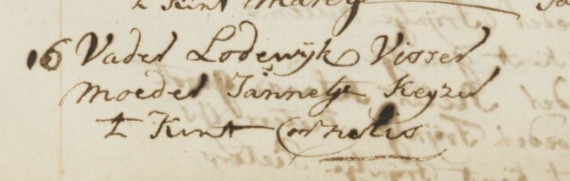 t Kint
16 Vader Lodewijk Visser
Moeder Jannetje Keyzer
t Kint Cornelis